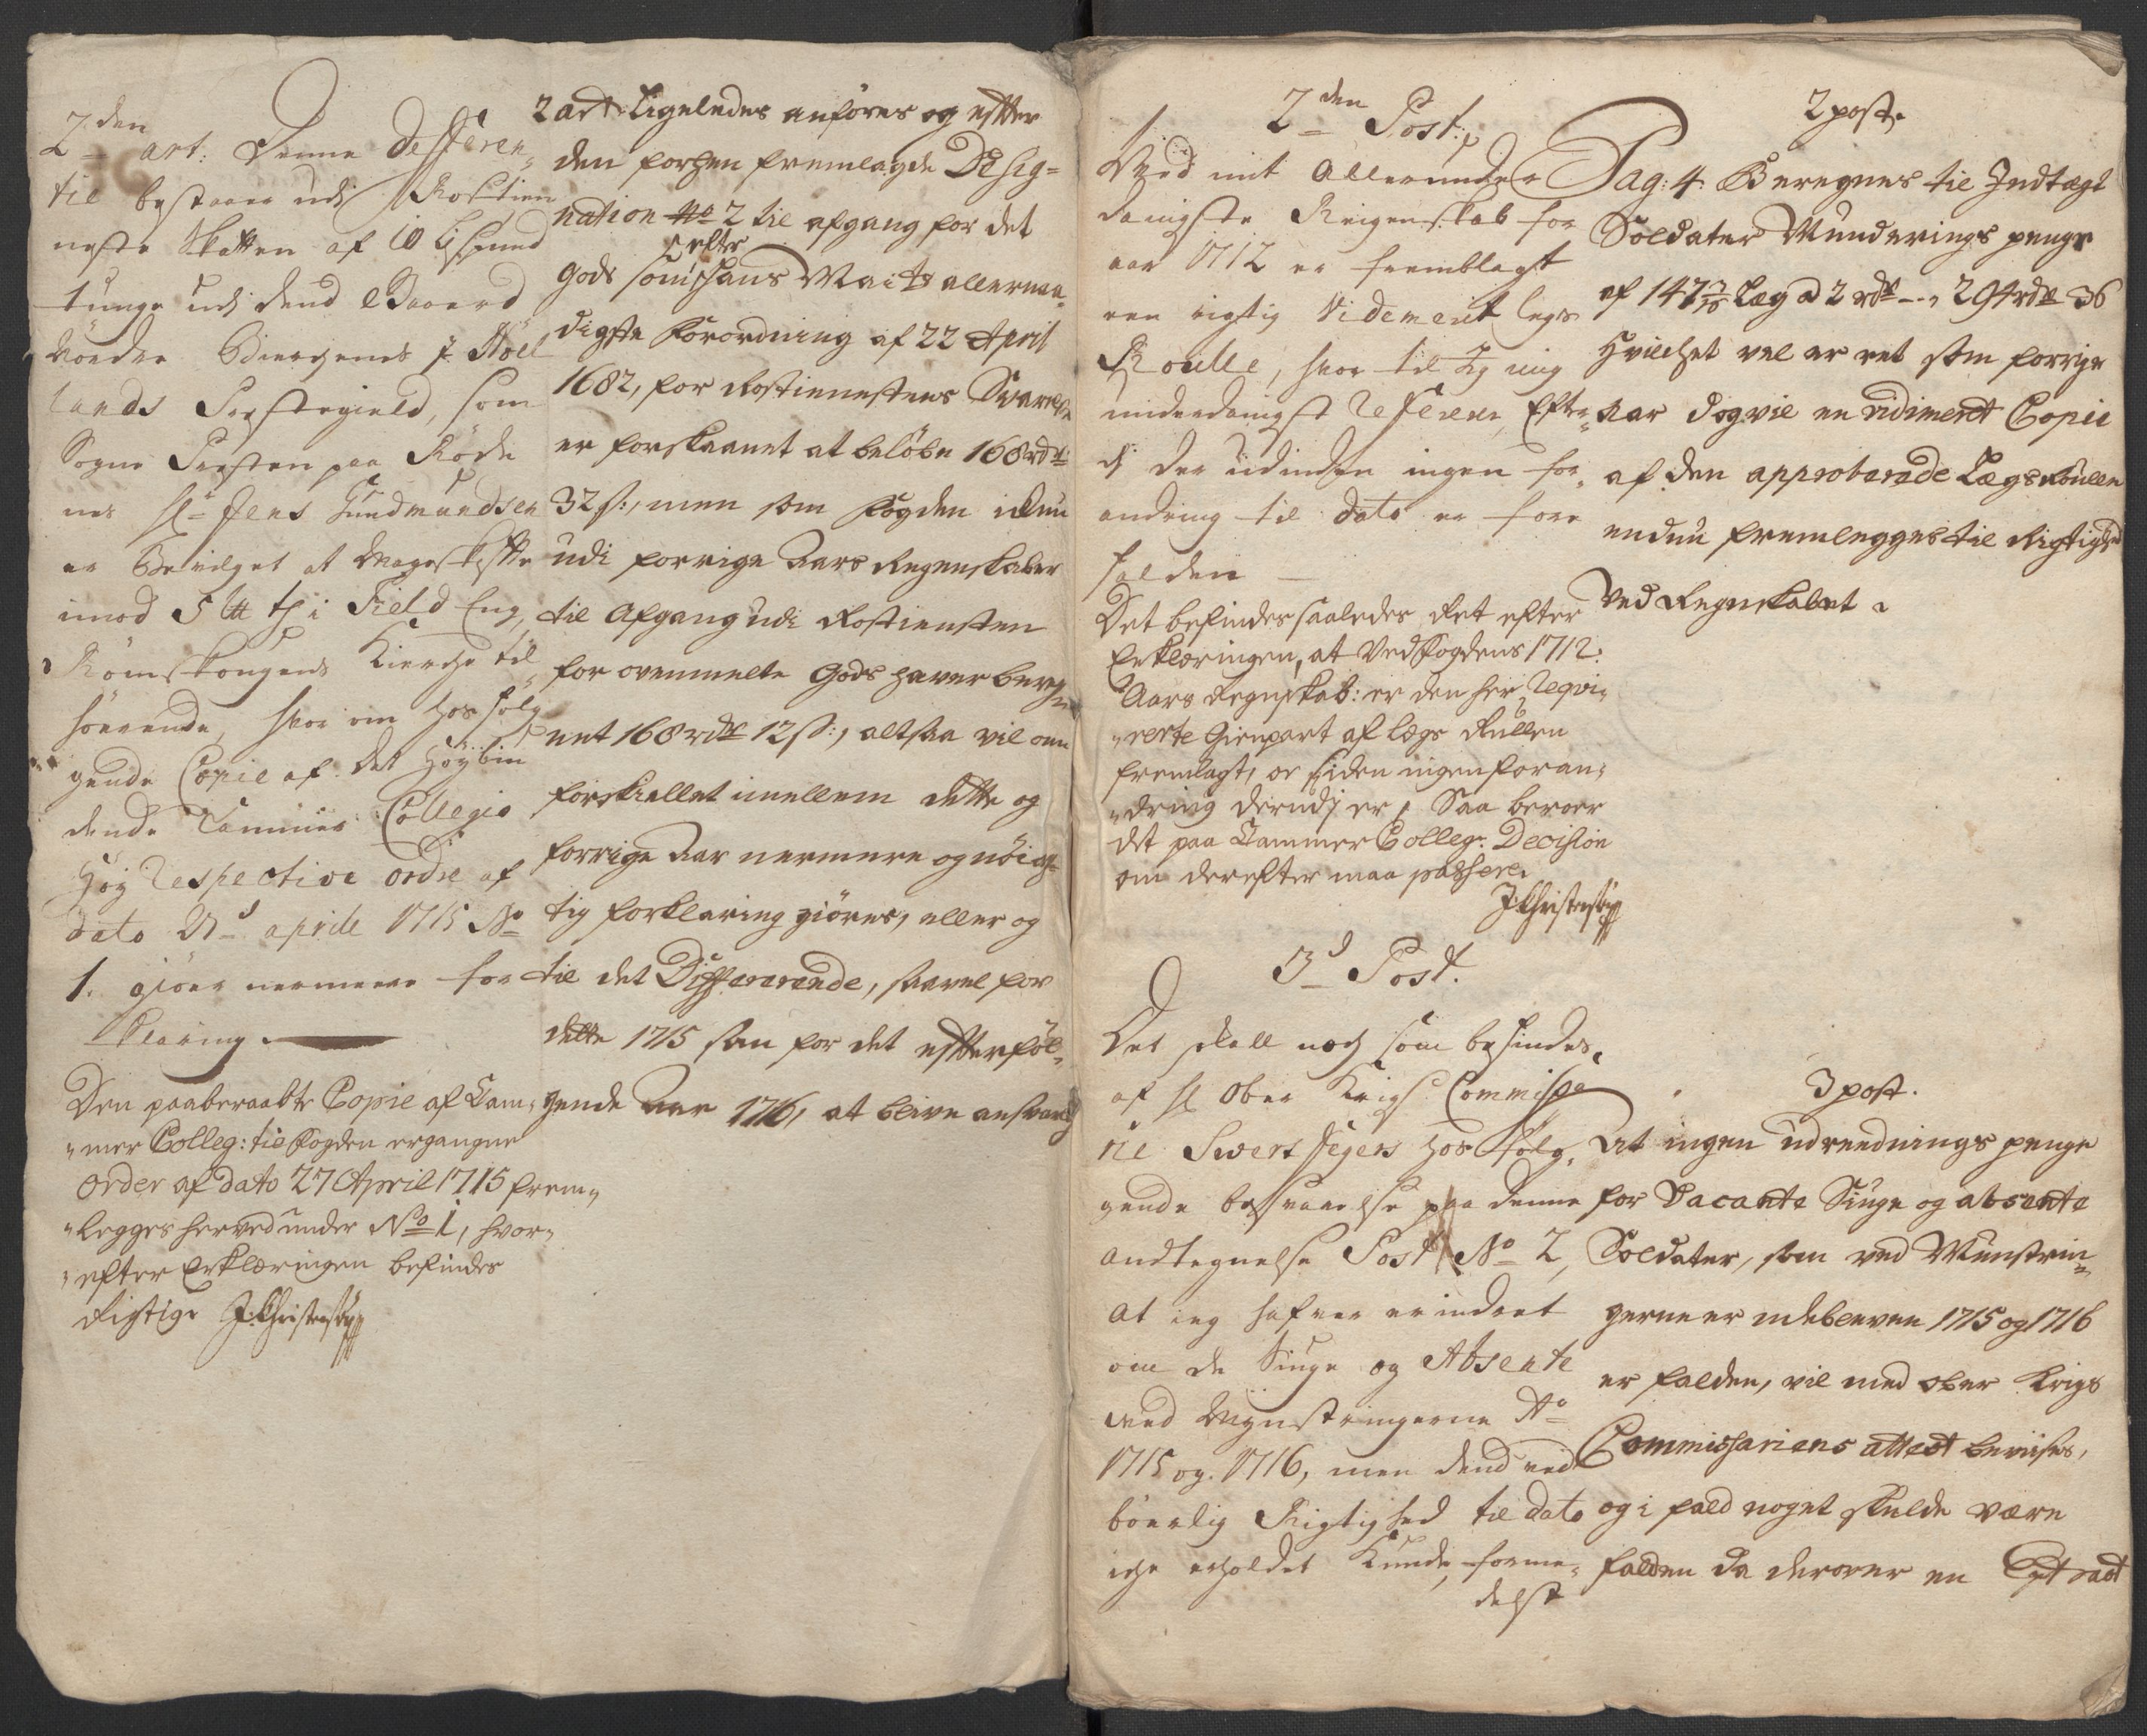 2den art: Denne Defferen„
tie bestaaer udj Rostien
neste Skatten af 10 Lispund
tunge udj dend Gaard
Nordre Biergenes j Nøll
lands Præstegield, som
Sogne Præsten paa Røde
nes Hr Jens Gundmundsen
er Bevilget at Mageskiffte
imod 5 i Field Eng,
Rømskougens Kierche til„
hørende, hvor om hosføl„
gende Copie af det Høybiu
dende Cammer Collegio
Høy Respective ordre af
dato 27d aprile 1715 No
1. giør nermere for
klaring.
Den paaberaabte Copie af Cam„
„mer Colleg: til Fogden ergangne
Order af dato 27 April 1715 frem„
„legges herved under No 1, hvor„
„efter Erklæringen befindes
Rigtig. J. Christensen
2 art. Ligeledes anføres og effter
den forhen fremlagde Desig=
nation No 2 til afgang for det
gods som efter hans Maits allernaa„
digste Forordning af 22 April
1682, for Rostienestens Svarelse
er forskaanet at beløbe 168 rdr
32 s:, men som Fogden
udi forrige Aars Regenskaber
til Afgang udi Rostiensten
for ovenmelte Gods haver bereg„
net 168 rdr 12 s:, altsaa vil om
forskiellet imellem dette og
forrige Aar nermere og nöiag„
tig forklaring giöres, eller og
til det Differerende, saavel for
dette 1715 som for det effterföl„
gende Aar 1716, at blive ansvarlig
2den Post.
Ved mit Allerunder
danigste Reigenskab for
aar 1712 er fremblagt
een rigtig Videmerit legs
Roulle, hvor til Jeg mig
underdanigst Referer, Efter„
dj der udinden ingen for„
andring til dato er fore
falden
Det befindes saaledes Ret efter
Erklæringen, at Ved Fogdens 1712:
Aars Regnskab: er den her Reqvi„
„rerte Gienpart af Legs Rullen
fremlagt, oc siden ingen foran„
„dring derudj er, Saa beroer
det paa Cammer Colleg: Decision
om derefter maa passere.
J. Christensen
3d Post.
Det skall nok som befindes
af Hr Ober Krigs Commissa
rie Swert Segers hos følg„
gende besvarelse paa denne
andtegnelse Post No 2,
at ieg hafver erindret
om de Siuge og Absente
ved Mynstringerne Ao
1715 og 1716, men dend ved
börlig Rigtighed til dato
iche erholdet Kunde, forme„
delst
2 post.
Pag: 4. Beregnes til Indtægt
Soldater Munderings penge
af 147 3/10 Læg a 2 rdr — „ 294 rdr 36
Hvilchet vel er ret som forrige
Aar dog vil en vidimeret Copie
af den approberede Lægs Roullen
enduu fremlegges til Rigtighed
ved Regnskabet.
3 post.
At ingen udreednings penge
for Vacante Siuge og absente
Soldater, som ved Munstrin„
gerne er udebleven 1715 og 1716
er falden, vil med Ober Krigs
Commissariens attest beviises,
og i fald noget skulde være
falden da derover en Extract